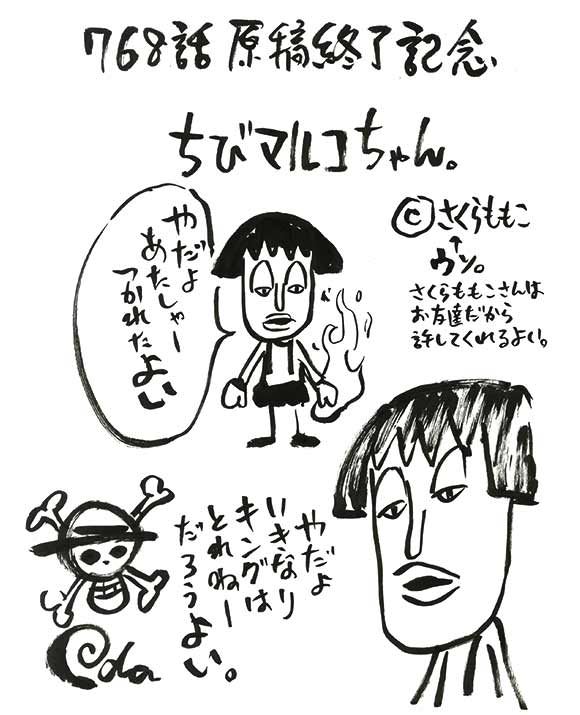 768話原稿終了記念
ちびマルコちゃん。
やだよ
あたしゃー
つかれたよい
©さくらももこ
↑
ウソ。
さくらももこさんは
お友達だから
許してくれるよい。
やだよ
いきなり
キングは
とれねー
だろうよい。
Oda